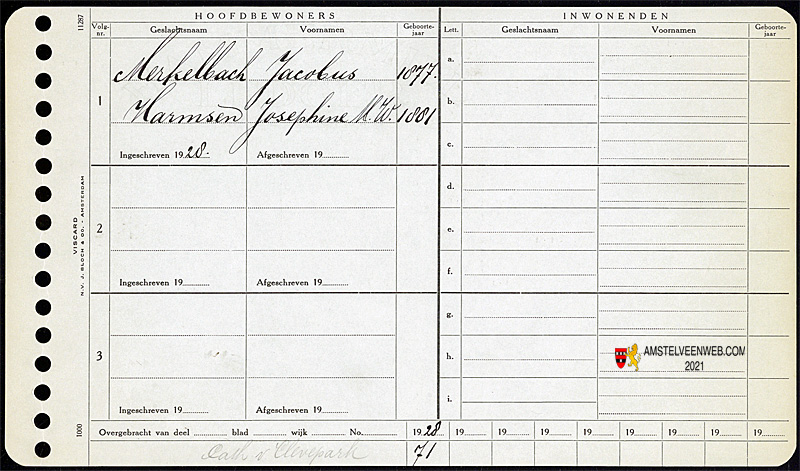 HOOFDBEWONERS
INWONENDEN
11287
Volg-nr.
Geslachtsnaam
Voornamen
Geboorte-jaar
Lett.
Geslachtsnaam
Voornamen
Geboorte-jaar
1
Merkelbach Jacobus 1877.
Harmsen Josephine M. W. 1881
Ingeschreven 1928.
Afgeschreven 19
a.
b.
c.
2
Ingeschreven 19
Afgeschreven 19
d.
e.
f.
3
Ingeschreven 19
Afgeschreven 19
g.
h.
i.
AMSTELVEENWEB.COM
2021
VISCARD
N.V. J. BLOCH & CO. - AMSTERDAM
1000
Overgebracht van deel blad wijk No. 1928 19 19 19 19 19 19 19 19
Cath v Clevepark
71